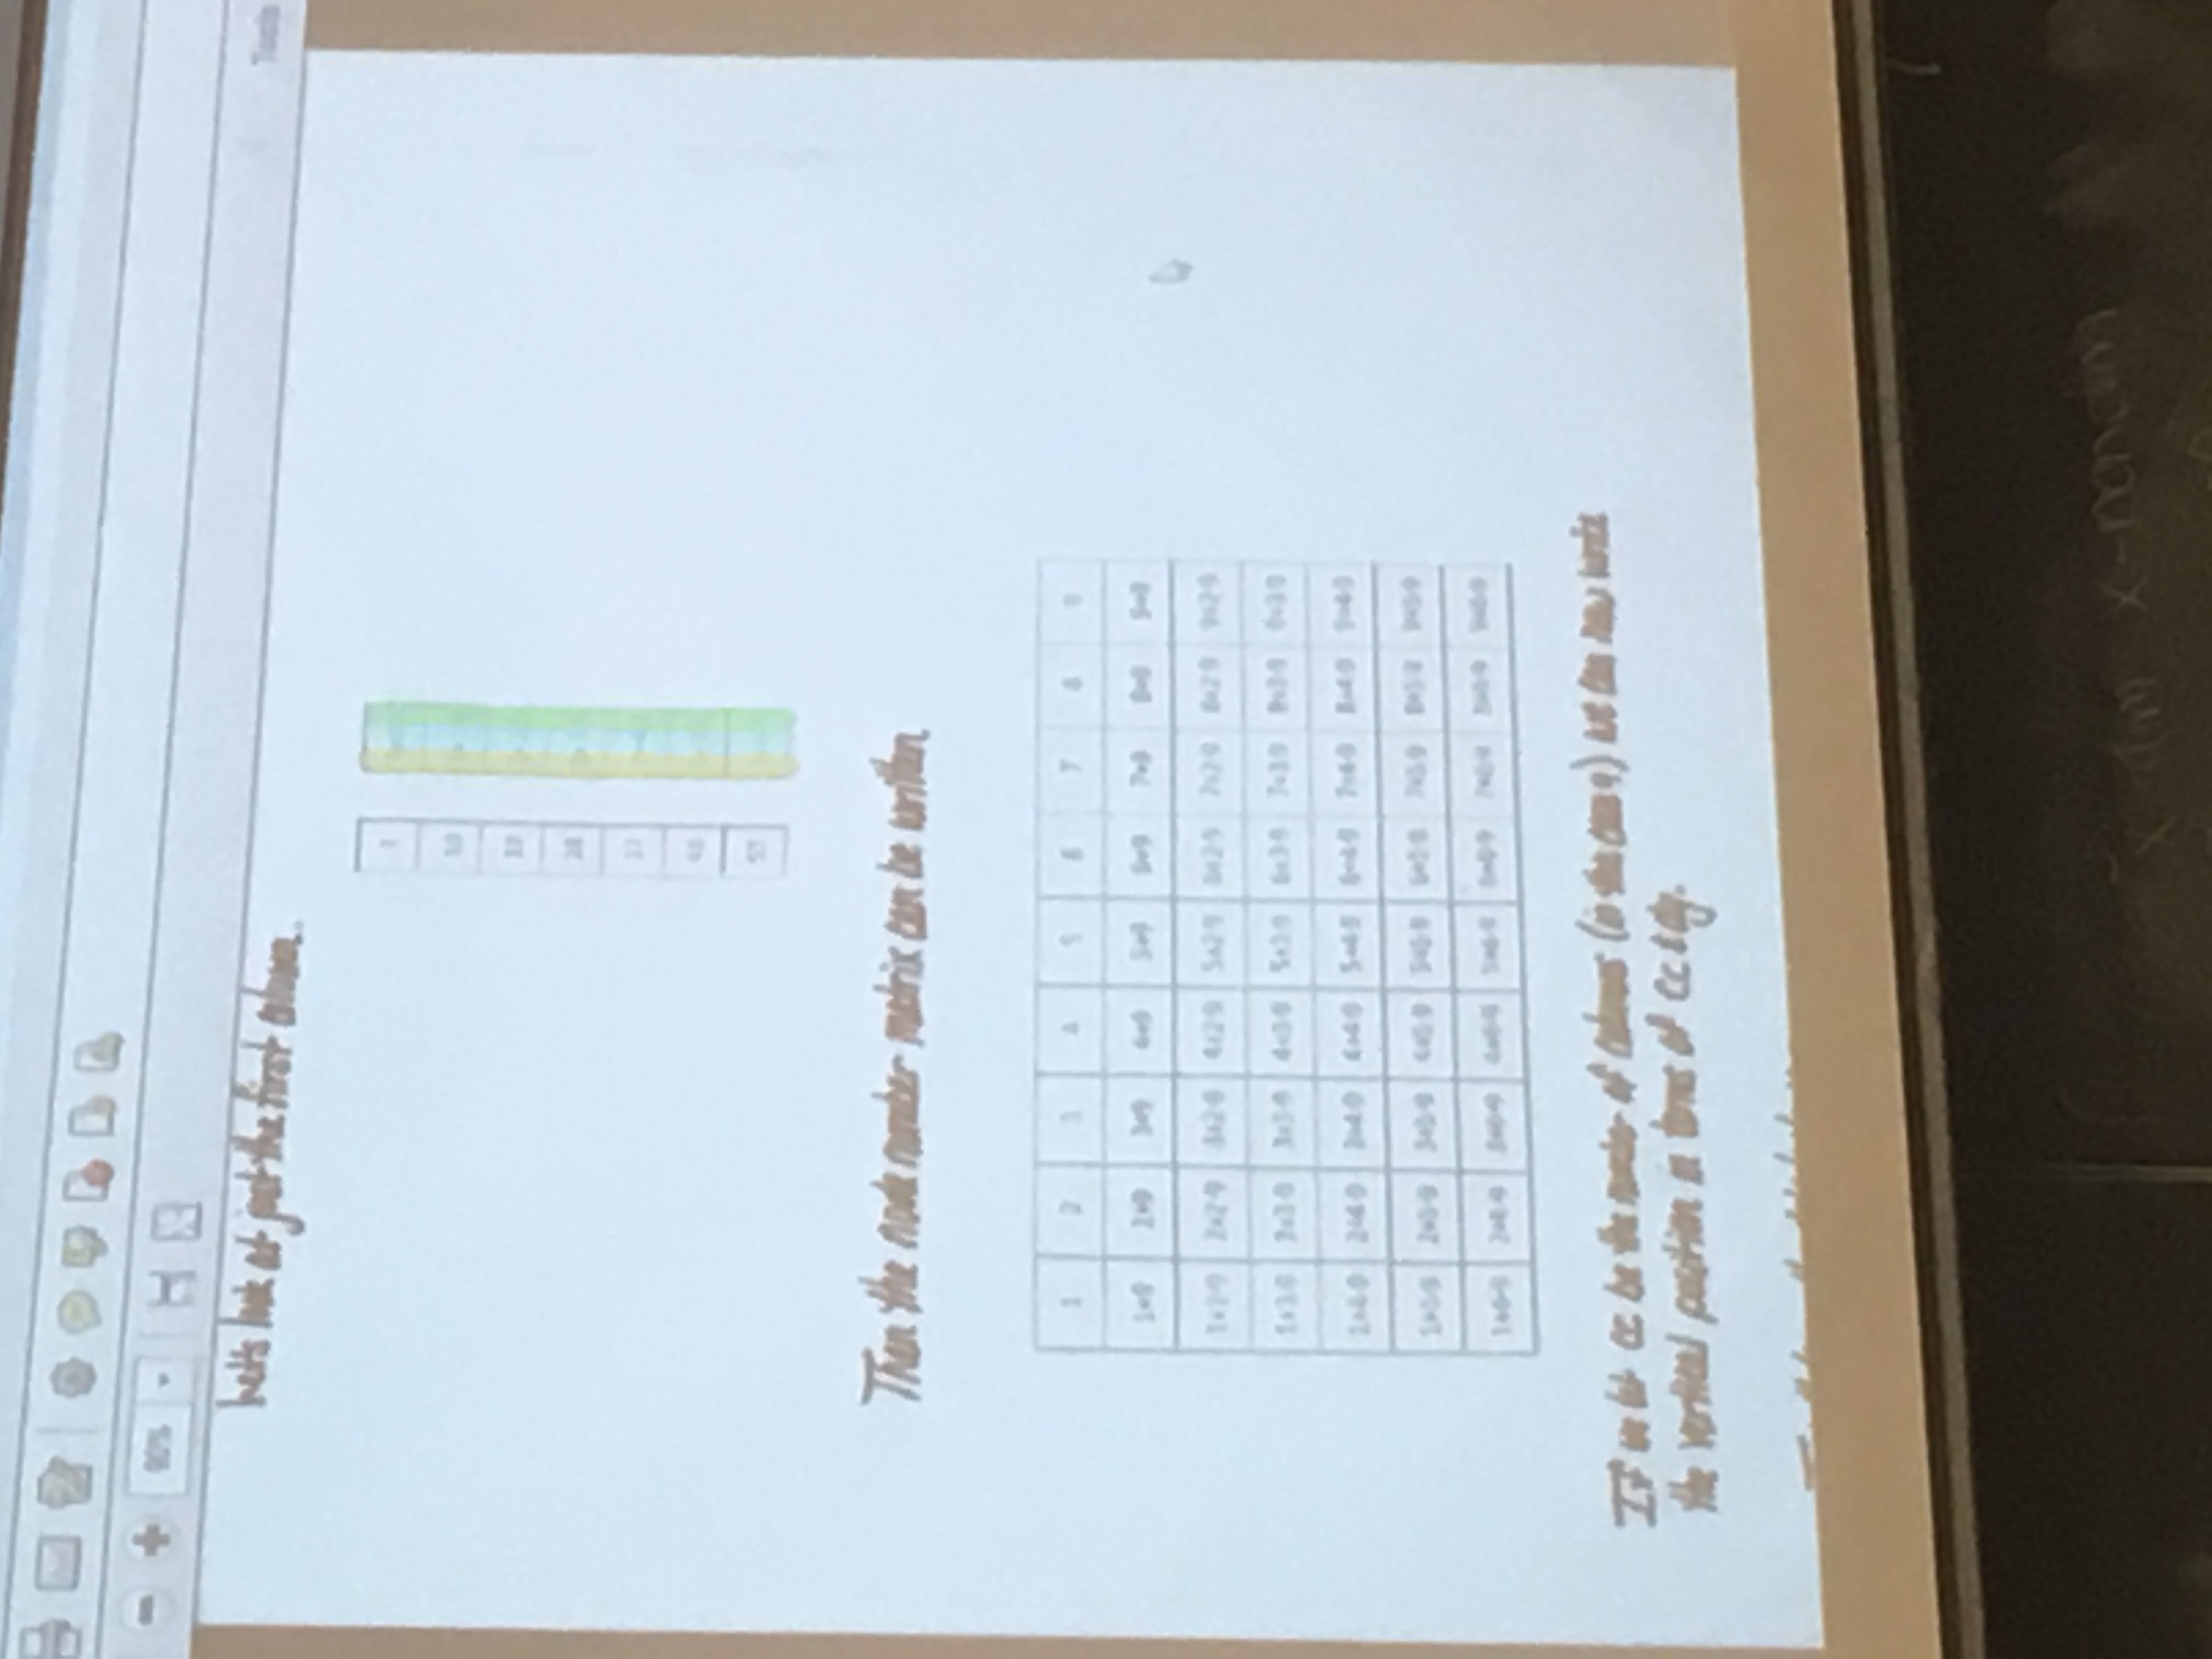 90%
Tools
Let's look at just the first column.
1
10
19
28
37
46
55
Then the node number matrix can be written
1 2 3 4 5 6 7 8 9
1+9 2+9 3+9 4+9 5+9 6+9 7+9 8+9 9+9
1+2·9 2+2·9 3+2·9 4+2·9 5+2·9 6+2·9 7+2·9 8+2·9 9+2·9
1+3·9 2+3·9 3+3·9 4+3·9 5+3·9 6+3·9 7+3·9 8+3·9 9+3·9
1+4·9 2+4·9 3+4·9 4+4·9 5+4·9 6+4·9 7+4·9 8+4·9 9+4·9
1+5·9 2+5·9 3+5·9 4+5·9 5+5·9 6+5·9 7+5·9 8+5·9 9+5·9
1+6·9 2+6·9 3+6·9 4+6·9 5+6·9 6+6·9 7+6·9 8+6·9 9+6·9
If we let cc be the number of columns (in this case 9) we can now write
the vertical position in terms of cc & dy.
x-dim x-nondim